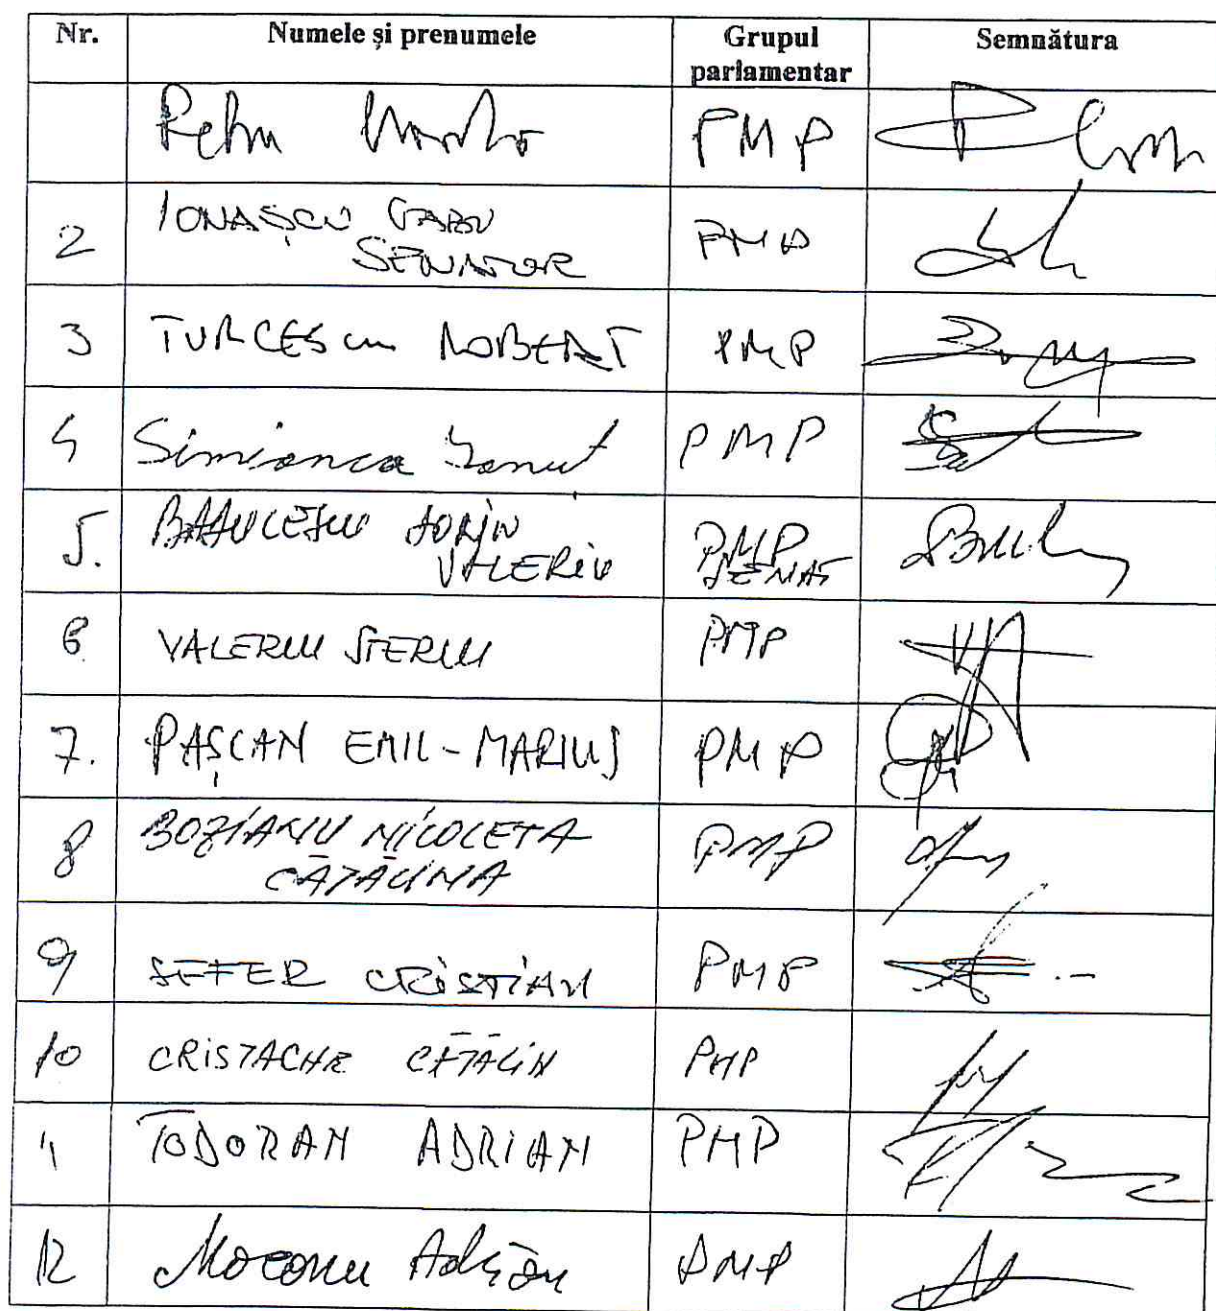 Nr. Numele și prenumele Grupul parlamentar Semnătura
Petru PMP
2 IONAȘCU GABU SENATOR PMP
3 TURCESCU ROBERT PMP
4 Simionca Ionut PMP
5. BRAILESCU SORIN VALERIU PMP SENAT
6. VALERIU STERIU PMP
7. PAȘCAN EMIL-MARIUS PMP
8 BOZIANU NICOLETA CĂTĂLINA PMP
9 SEFER CRISTIAN PMP
10 CRISTACHE CĂTĂLIN PMP
11 TODORAN ADRIAN PMP
12 Mocanu Adrian PMP